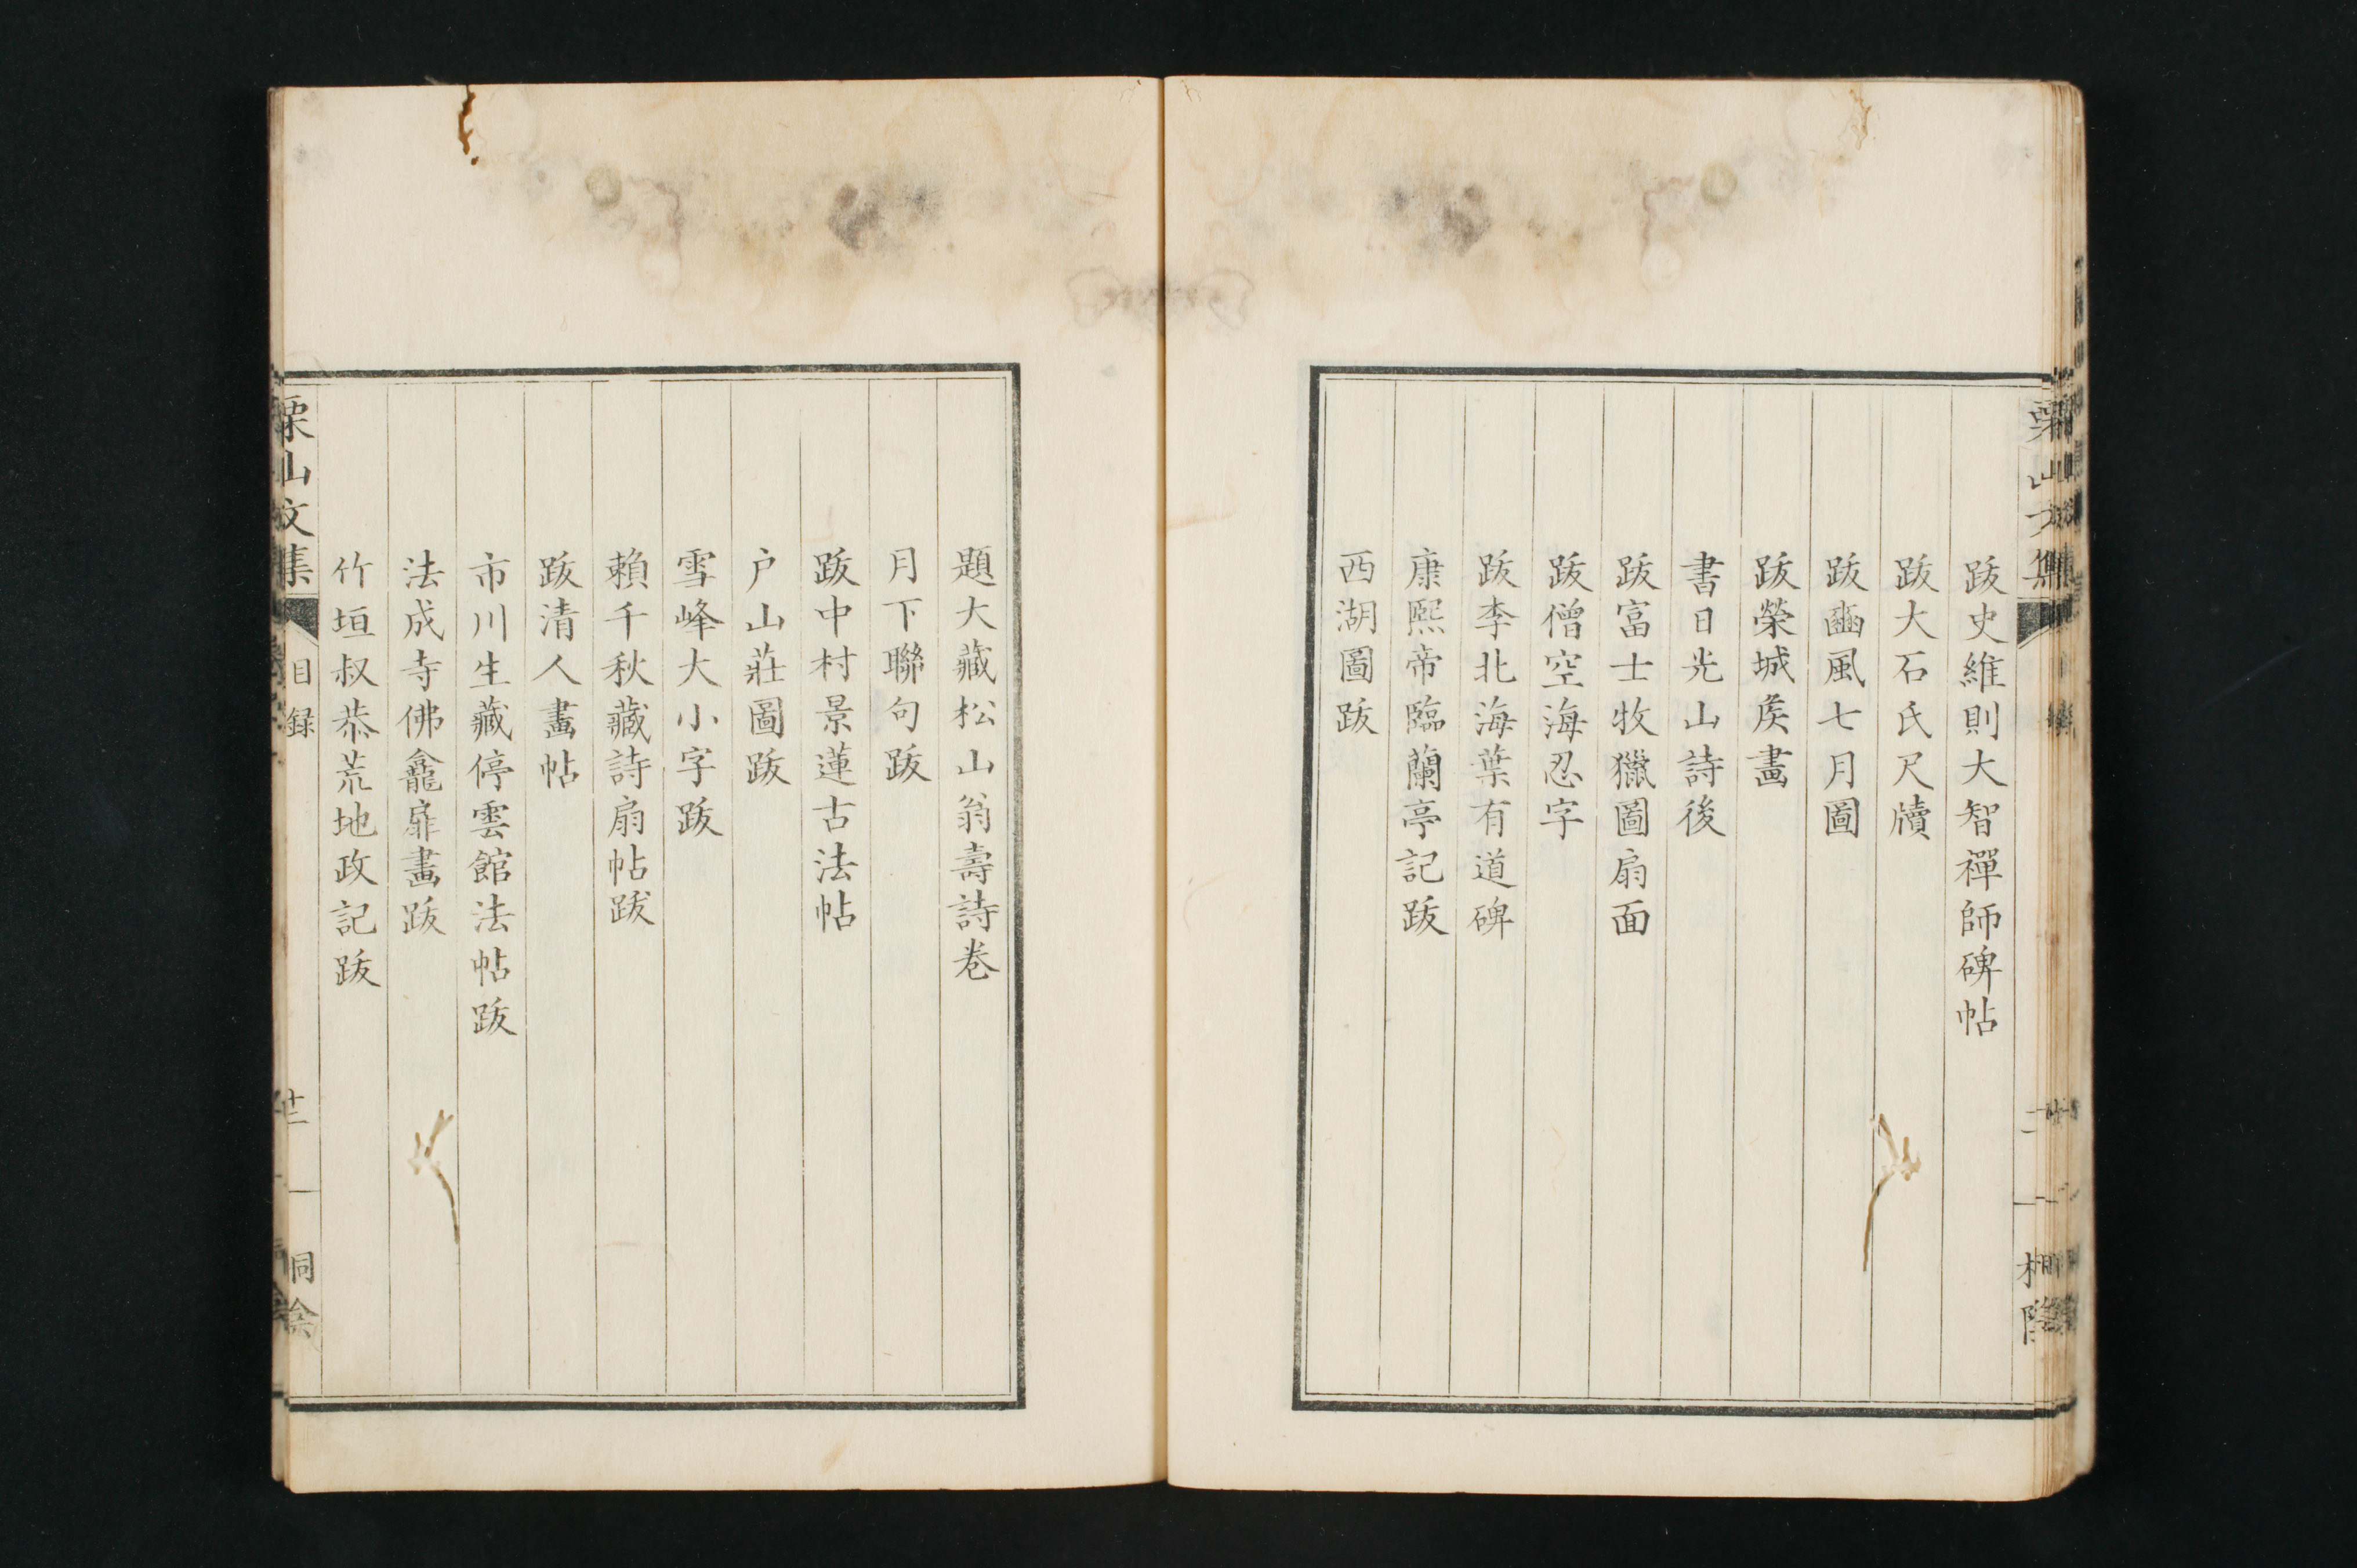 跋史維則大智禪師碑帖
跋大石氏尺牘
跋豳風七月圖
跋榮城矦畫
書日光山詩後
跋富士牧獵圖扇面
跋僧空海忍字
跋李北海葉有道碑
康熙帝臨蘭亭記跋
西湖圖跋
題大藏松山翁壽詩卷
月下聯句跋
跋中村景蓮古法帖
戶山莊圖跋
雪峰大小字跋
賴千秋藏詩扇帖跋
跋清人畫帖
市川生藏停雲館法帖跋
法成寺佛龕扉畫跋
竹垣叔恭荒地政記跋
栗山文集
目録